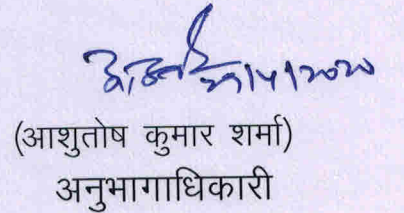 (आशुतोष कुमार शर्मा)
अनुभागाधिकारी